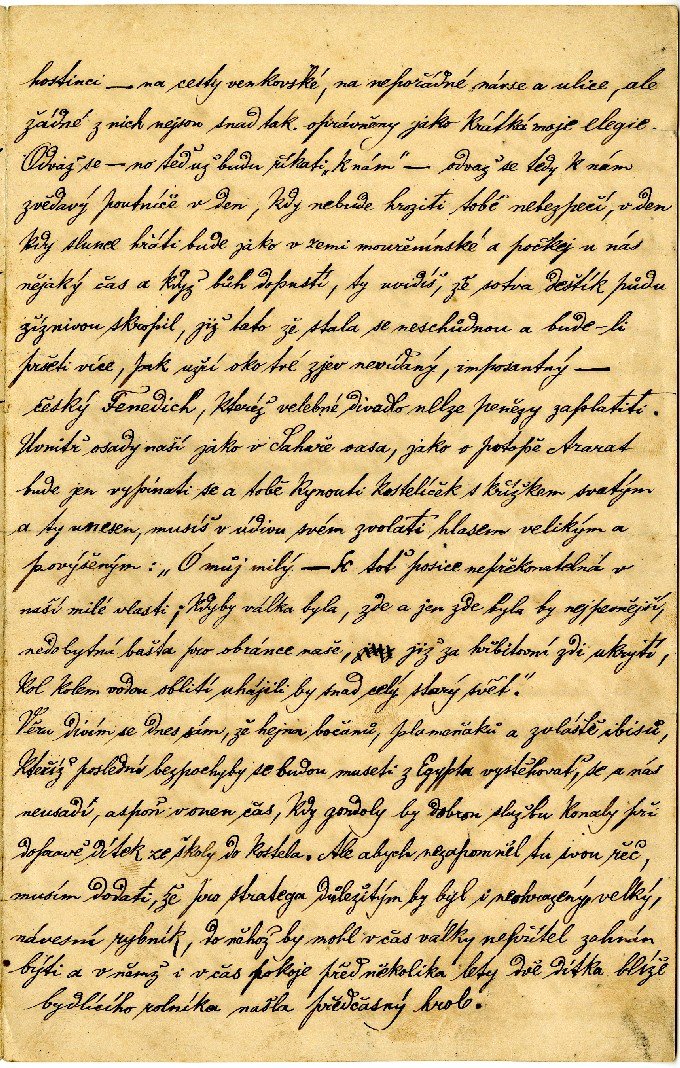 hostinci — na cesty venkovské, na nepořádné návse a ulice, ale
žádné z nich nejsou snad tak oprávněny jako krátká moje elegie.
Odvaž se — no teď už budu říkati „k nám" — odvaž se tedy k nám
zvědavý poutníče v den, kdy nebude hroziti tobě nebezpečí, v den
kdy slunce hřáti bude jako v zemi mouřenínské a počkej u nás
nějaký čas a když bůh dopustí, ty uvidíš, že sotva deštík půdu
žíznivou skropil, již tato že stala se neschůdnou a bude-li
pršeti více, pak uzří oko tvé zjev nevídaný, imposantný —
český Fenedich, kteréž velebné divadlo nelze penězy zaplatiti.
Uvnitř osady naší jako v Sahaře oasa, jako o potopě Ararat
bude jen vypínati se a tobě kynouti kostelíček s křížkem svatým
a ty unesen, musíš v údivu svém zvolati hlasem velikým a
povýšeným: „Ó můj milý — toť posice nepřekonatelná v
naší milé vlasti; kdyby válka byla, zde a jen zde byla by nejpevnější,
nedobytná bašta pro obránce naše, již za hřbitovní zdi ukrytí,
kol kolem vodou oblití uhájili by snad celý starý svět".
Věru divím se dnes sám, že hejna bočánů, plameňáků a zvláště ibisů,
kteříž poslední bezpochyby se budou museti z Egypta vystěhovat, se u nás
neusadí, aspoň v onen čas, kdy gondoly by dobrou službu konaly při
dopravě dítek ze školy do kostela. Ale abych nezapomněl tu svou řeč,
musím dodati, že pro stratega důležitým by byl i neohrazený velký,
návesní rybník, do něhož by mohl v čas války nepřítel zahnán
býti a v němž i v čas pokoje před několika lety dvě dítka blíže
bydlícího rolníka našla předčasný hrob.